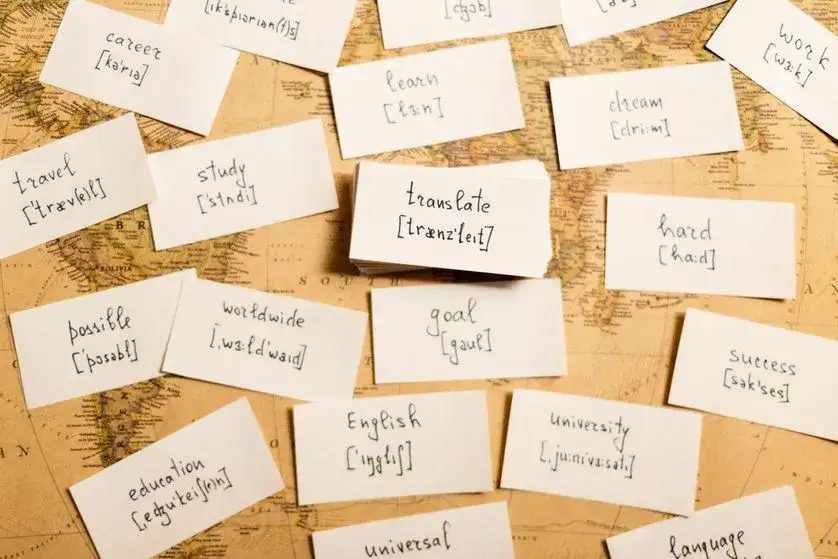 career
[kəˈrɪə]
[ɪkˈspɪərɪən(t)s]
learn
[lɜːn]
dream
[driːm]
work
[wɜːk]
travel
[ˈtræv(ə)l]
study
[ˈstʌdi]
translate
[trænzˈleɪt]
hard
[hɑːd]
possible
[ˈpɔsəbl]
worldwide
[ˌwɜːldˈwaɪd]
goal
[gəul]
success
[səkˈses]
education
[ˌeʤuˈkeɪʃ(ə)n]
English
[ˈɪŋglɪʃ]
university
[ˌjuːnɪˈvɜːsətɪ]
universal
language
BOLIVIA
SOUTH